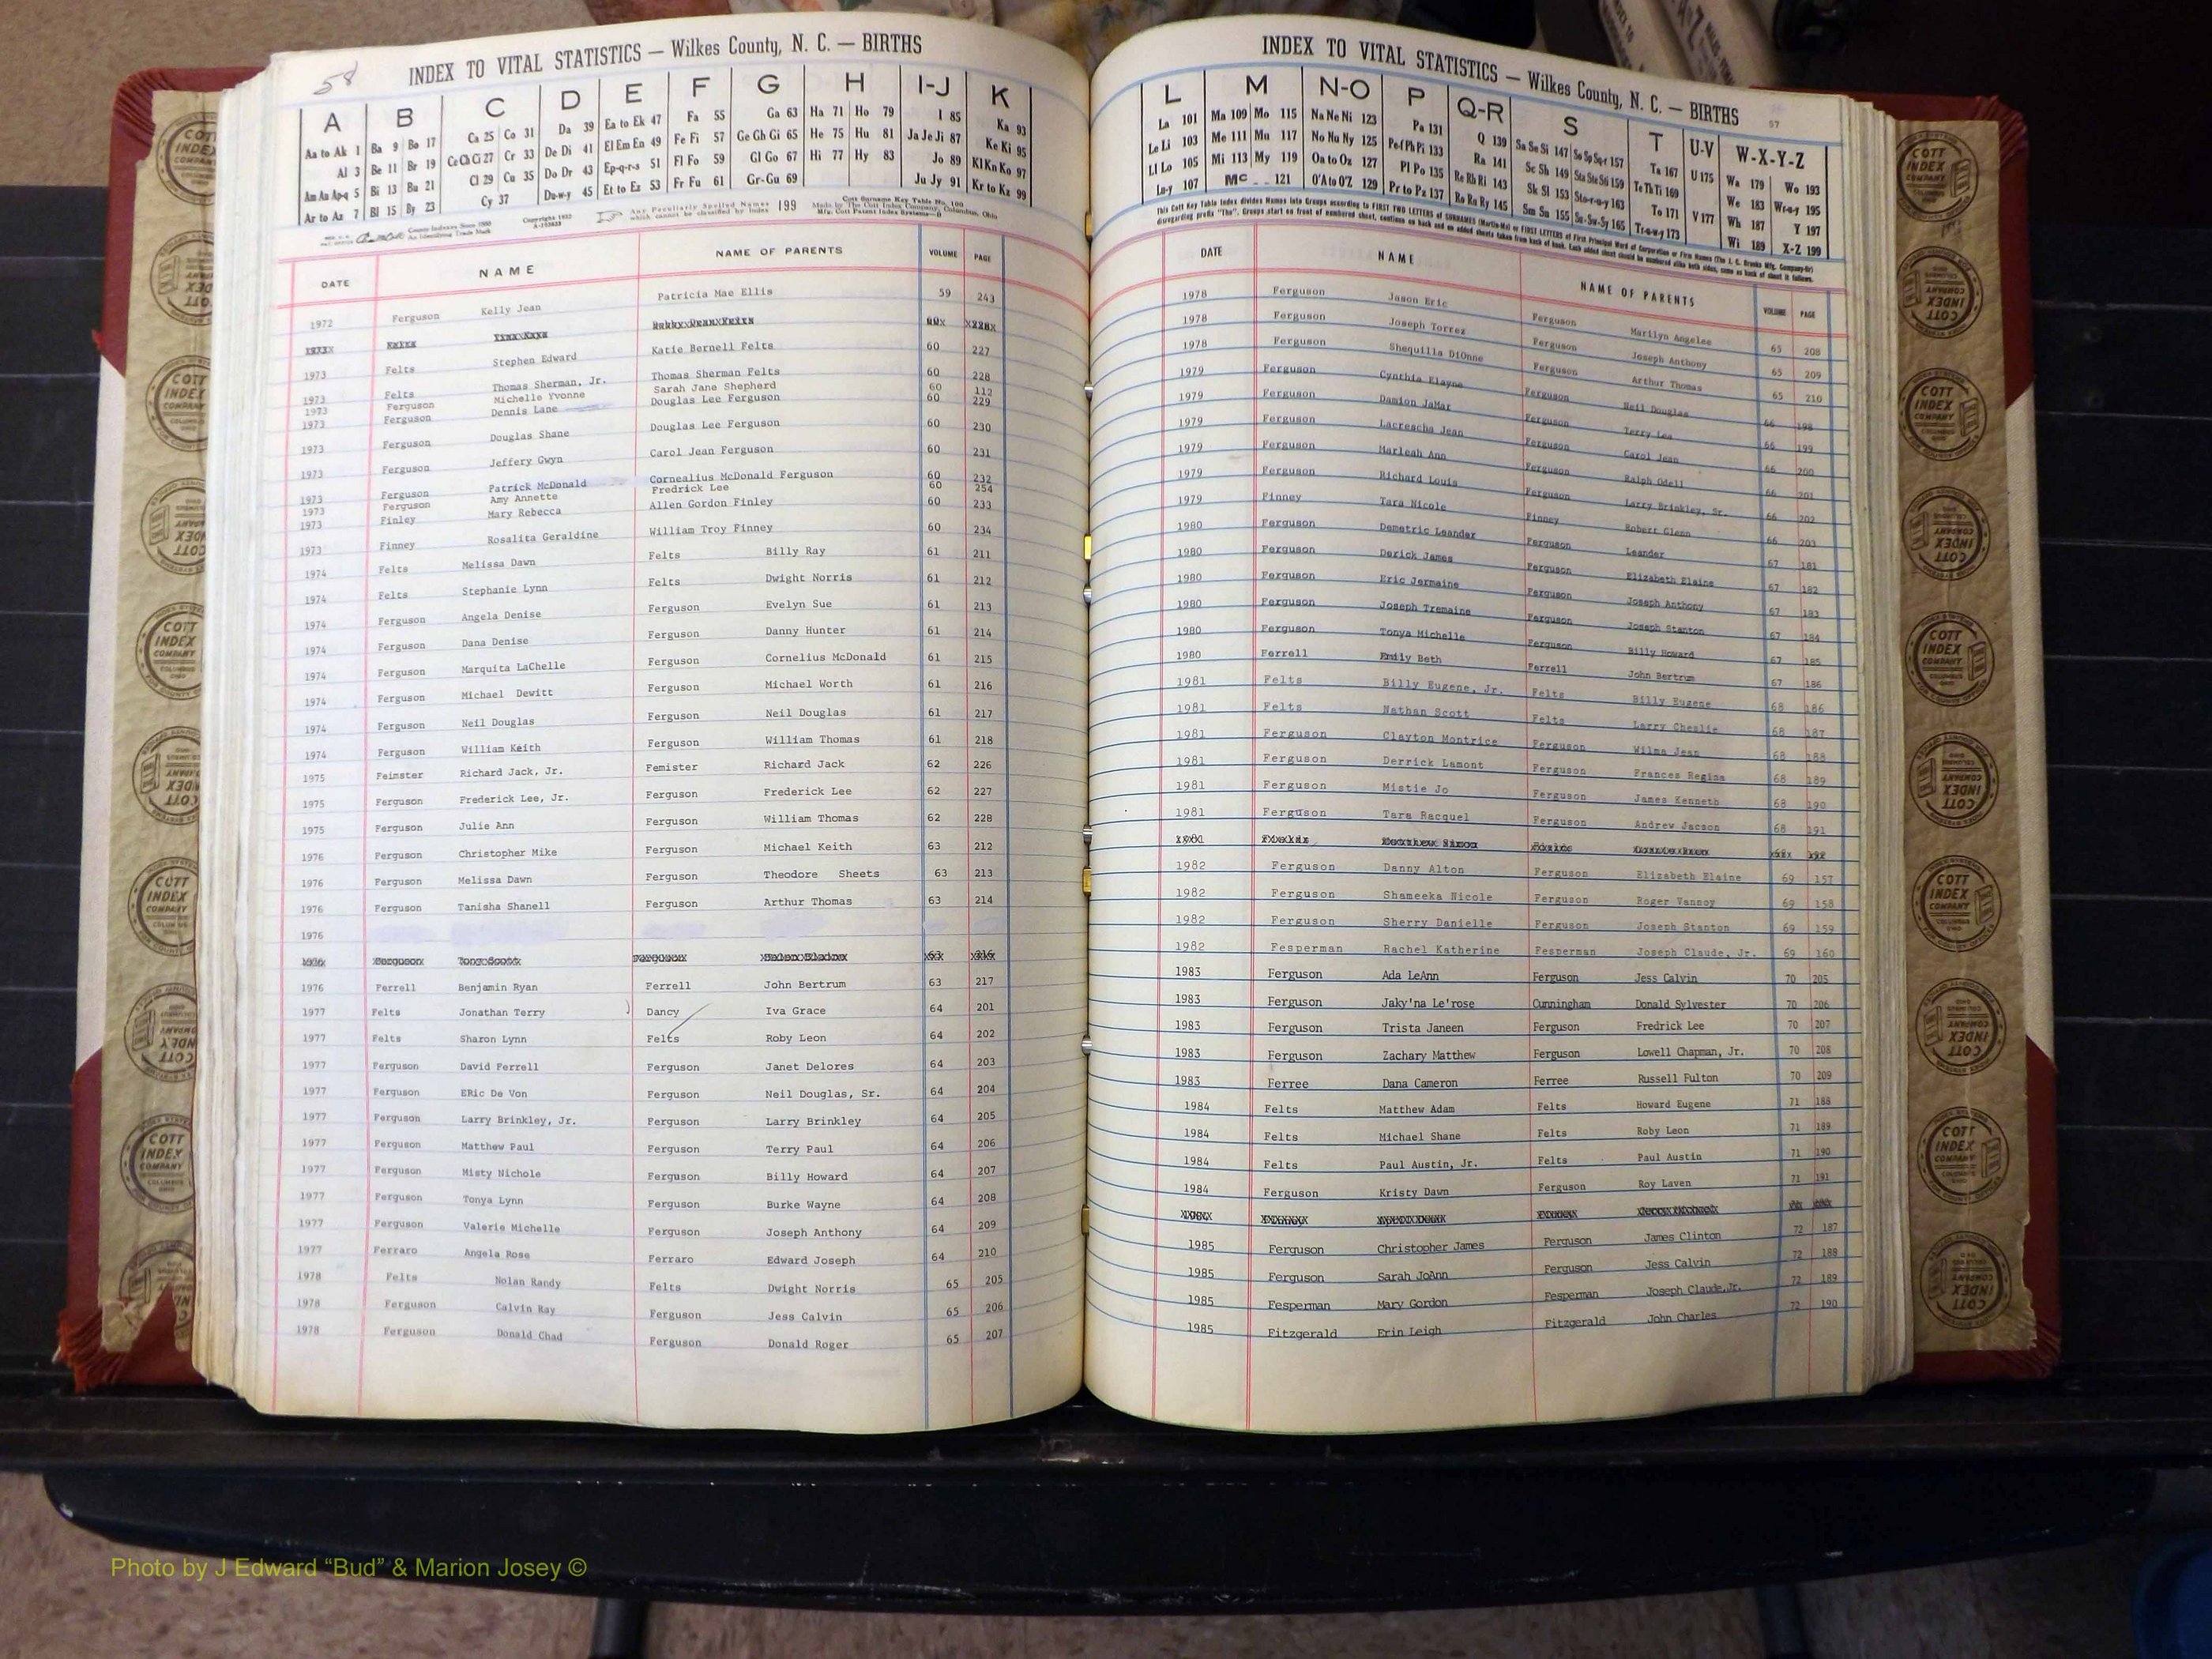 58
INDEX TO VITAL STATISTICS — Wilkes County, N. C. — BIRTHS
A B C D E F G H I-J K
Aa to Ak 1 Ba 9 Bo 17 Ca 25 Co 31 Da 39 Ea to Ek 47 Fa 55 Ga 63 Ha 71 Ho 79 I 85 Ka 93
Al 3 Be 11 Br 19 Ce Ch Ci 27 Cr 33 De Di 41 El Em En 49 Fe Fi 57 Ge Gh Gi 65 He 75 Hu 81 Ja Je Ji 87 Ke Ki 95
Am An Ap-q 5 Bi 13 Bu 21 Cl 29 Cu 35 Do Dr 43 Ep-q-r-s 51 Fl Fo 59 Gl Go 67 Hi 77 Hy 83 Jo 89 Kl Kn Ko 97
Ar to Az 7 Bl 15 By 23 Cy 37 Du-w-y 45 Et to Ez 53 Fr Fu 61 Gr-Gu 69 Ju Jy 91 Kr to Kz 99
Any Peculiarly Spelled Names which cannot be classified by Index 199
DATE NAME NAME OF PARENTS VOLUME PAGE
1972 Ferguson Kelly Jean Patricia Mae Ellis 59 243
1973 Felts Stephen Edward Katie Bernell Felts 60 227
1973 Felts Thomas Sherman, Jr. Thomas Sherman Felts 60 228
1973 Ferguson Michelle Yvonne Sarah Jane Shepherd 60 112
1973 Ferguson Dennis Lane Douglas Lee Ferguson 60 229
1973 Ferguson Douglas Shane Douglas Lee Ferguson 60 230
1973 Ferguson Jeffery Gwyn Carol Jean Ferguson 60 231
1973 Ferguson Patrick McDonald Cornealius McDonald Ferguson 60 232
1973 Ferguson Amy Annette Fredrick Lee 60 254
1973 Finley Mary Rebecca Allen Gordon Finley 60 233
1973 Finney Rosalita Geraldine William Troy Finney 60 234
1974 Felts Melissa Dawn Felts Billy Ray 61 211
1974 Felts Stephanie Lynn Felts Dwight Norris 61 212
1974 Ferguson Angela Denise Ferguson Evelyn Sue 61 213
1974 Ferguson Dana Denise Ferguson Danny Hunter 61 214
1974 Ferguson Marquita LaChelle Ferguson Cornelius McDonald 61 215
1974 Ferguson Michael Dewitt Ferguson Michael Worth 61 216
1974 Ferguson Neil Douglas Ferguson Neil Douglas 61 217
1974 Ferguson William Keith Ferguson William Thomas 61 218
1975 Feimster Richard Jack, Jr. Femister Richard Jack 62 226
1975 Ferguson Frederick Lee, Jr. Ferguson Frederick Lee 62 227
1975 Ferguson Julie Ann Ferguson William Thomas 62 228
1976 Ferguson Christopher Mike Ferguson Michael Keith 63 212
1976 Ferguson Melissa Dawn Ferguson Theodore Sheets 63 213
1976 Ferguson Tanisha Shanell Ferguson Arthur Thomas 63 214
1976
1976 Ferrell Benjamin Ryan Ferrell John Bertrum 63 217
1977 Felts Jonathan Terry Dancy Iva Grace 64 201
1977 Felts Sharon Lynn Felts Roby Leon 64 202
1977 Ferguson David Ferrell Ferguson Janet Delores 64 203
1977 Ferguson ERic De Von Ferguson Neil Douglas, Sr. 64 204
1977 Ferguson Larry Brinkley, Jr. Ferguson Larry Brinkley 64 205
1977 Ferguson Matthew Paul Ferguson Terry Paul 64 206
1977 Ferguson Misty Nichole Ferguson Billy Howard 64 207
1977 Ferguson Tonya Lynn Ferguson Burke Wayne 64 208
1977 Ferguson Valerie Michelle Ferguson Joseph Anthony 64 209
1977 Ferraro Angela Rose Ferraro Edward Joseph 64 210
1978 Felts Nolan Randy Felts Dwight Norris 65 205
1978 Ferguson Calvin Ray Ferguson Jess Calvin 65 206
1978 Ferguson Donald Chad Ferguson Donald Roger 65 207
INDEX TO VITAL STATISTICS — Wilkes County, N. C. — BIRTHS
57
L M N-O P Q-R S T U-V W-X-Y-Z
La 101 Ma 109 Mo 115 Na Ne Ni 123 Pa 131 Q 139 Sa Se Si 147 So Sp Sq-r 157 Ta 167 U 175 Wa 179 Wo 193
Le Li 103 Me 111 Mu 117 No Nu Ny 125 Pe-f Ph Pi 133 Ra 141 Sc Sh 149 Sta Ste Sti 159 Te Th Ti 169 V 177 We 183 Wr-u-y 195
Ll Lo 105 Mi 113 My 119 Oa to Oz 127 Pl Po 135 Re Rh Ri 143 Sk Sl 153 Sto-r-u-y 163 To 171 Wh 187 Y 197
Lu-y 107 Mc 121 O'A to O'Z 129 Pr to Pz 137 Ro Ru Ry 145 Sm Sn 155 Su-Sw-Sy 165 Tr-u-w-y 173 Wi 189 X-Z 199
DATE NAME NAME OF PARENTS VOLUME PAGE
1978 Ferguson Jason Eric Ferguson Marilyn Angelee 65 208
1978 Ferguson Joseph Torrez Ferguson Joseph Anthony 65 209
1978 Ferguson Shequilla DiOnne Ferguson Arthur Thomas 65 210
1979 Ferguson Cynthia Elayne Ferguson Neil Douglas 66 198
1979 Ferguson Damion JaMar Ferguson Terry Lee 66 199
1979 Ferguson Lacreacha Jean Ferguson Carol Jean 66 200
1979 Ferguson Marleah Ann Ferguson Ralph Odell 66 201
1979 Ferguson Richard Louis Ferguson Larry Brinkley, Sr. 66 202
1979 Finney Tara Nicole Finney Robert Glenn 66 203
1980 Ferguson Demetric Leander Ferguson Leander 67 181
1980 Ferguson Derick James Ferguson Elizabeth Elaine 67 182
1980 Ferguson Eric Jermaine Ferguson Joseph Anthony 67 183
1980 Ferguson Joseph Tremaine Ferguson Joseph Stanton 67 184
1980 Ferguson Tonya Michelle Ferguson Billy Howard 67 185
1980 Ferrell Emily Beth Ferrell John Bertrum 67 186
1981 Felts Billy Eugene, Jr. Felts Billy Eugene 68 186
1981 Felts Nathan Scott Felts Larry Cheslie 68 187
1981 Ferguson Clayton Montrice Ferguson Wilma Jean 68 188
1981 Ferguson Derrick Lamont Ferguson Frances Regina 68 189
1981 Ferguson Mistie Jo Ferguson James Kenneth 68 190
1981 Ferguson Tara Racquel Ferguson Andrew Jacson 68 191
1982 Ferguson Danny Alton Ferguson Elizabeth Elaine 69 157
1982 Ferguson Shameeka Nicole Ferguson Roger Vannoy 69 158
1982 Ferguson Sherry Danielle Ferguson Joseph Stanton 69 159
1982 Fesperman Rachel Katherine Fesperman Joseph Claude, Jr. 69 160
1983 Ferguson Ada LeAnn Ferguson Jess Calvin 70 205
1983 Ferguson Jaky'na Le'rose Cunningham Donald Sylvester 70 206
1983 Ferguson Trista Janeen Ferguson Fredrick Lee 70 207
1983 Ferguson Zachary Matthew Ferguson Lowell Chapman, Jr. 70 208
1983 Ferree Dana Cameron Ferree Russell Fulton 70 209
1984 Felts Matthew Adam Felts Howard Eugene 71 188
1984 Felts Michael Shane Felts Roby Leon 71 189
1984 Felts Paul Austin, Jr. Felts Paul Austin 71 190
1984 Ferguson Kristy Dawn Ferguson Roy Laven 71 191
1985 Ferguson Christopher James Ferguson James Clinton 72 187
1985 Ferguson Sarah JoAnn Ferguson Jess Calvin 72 188
1985 Fesperman Mary Gordon Fesperman Joseph Claude,Jr. 72 189
1985 Fitzgerald Erin Leigh Fitzgerald John Charles 72 190
COTT INDEX COMPANY
Photo by J Edward “Bud” & Marion Josey ©